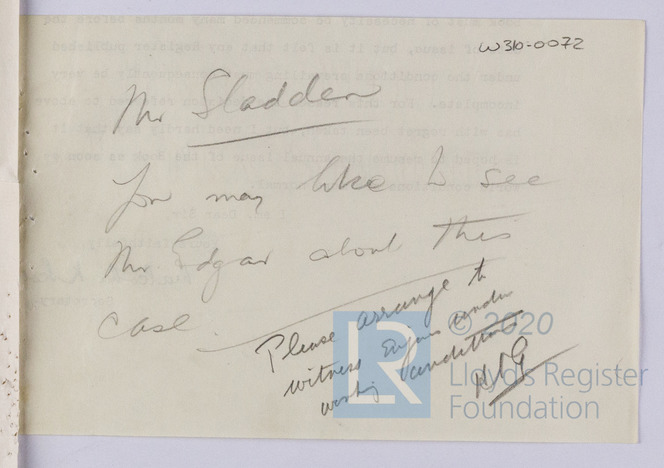 W310-0072
Mr Sladden
You may like to see
Mr Edgar about this
case.
Please arrange to
witness Engines under
working conditions
© 2020
LR
Lloyd's Register
Foundation